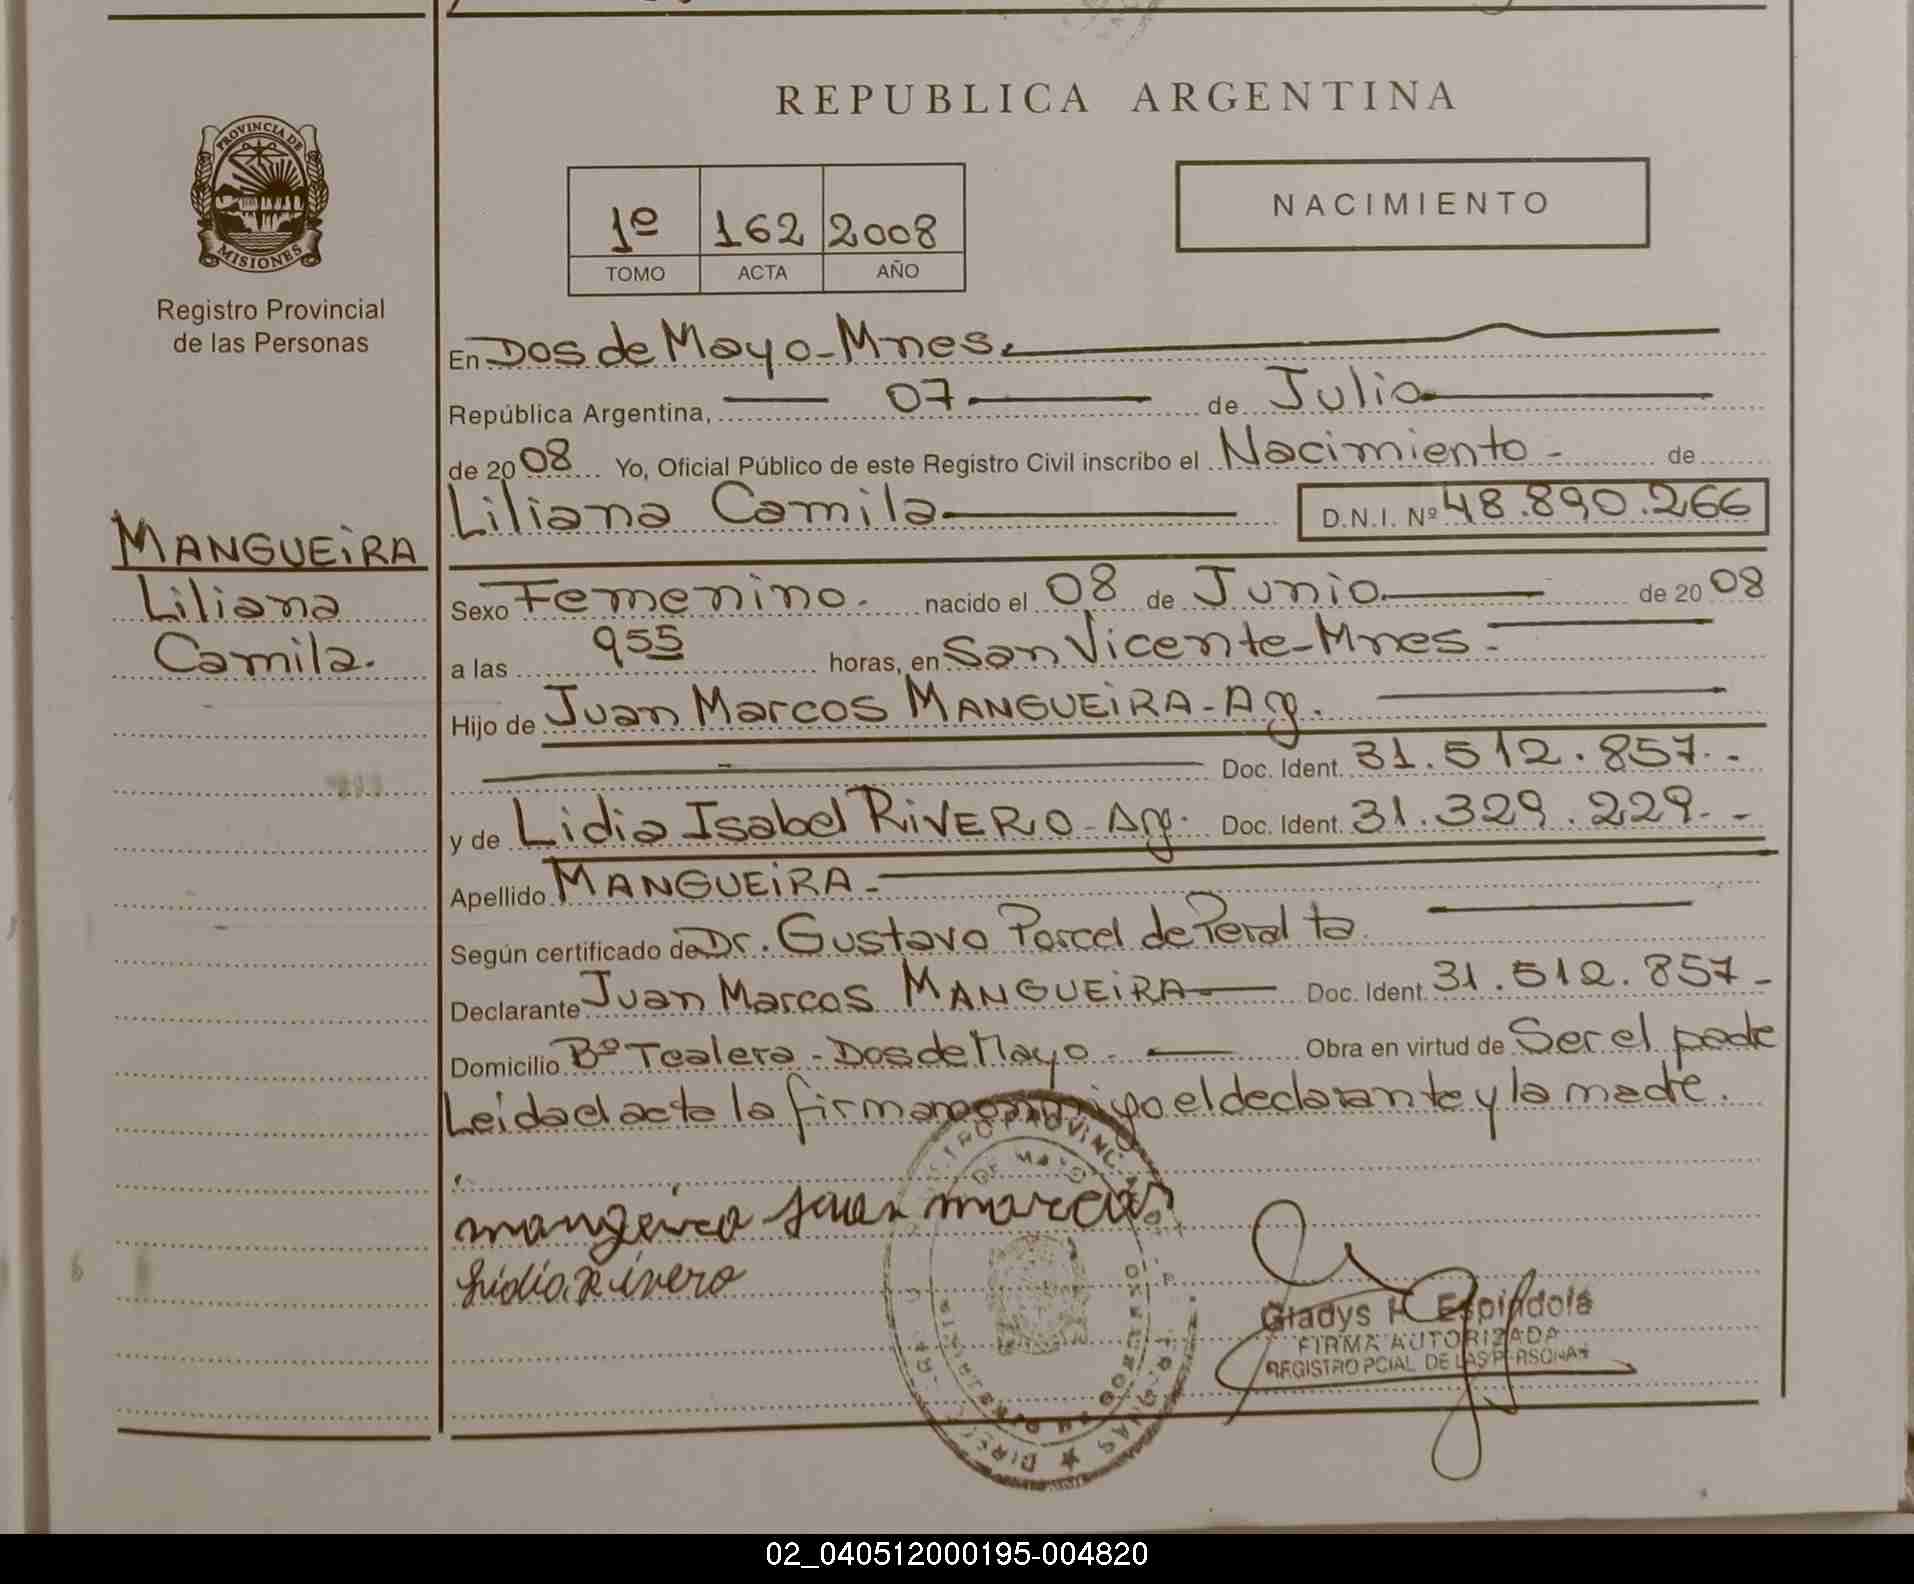 REPUBLICA ARGENTINA
PROVINCIA DE
MISIONES
Registro Provincial
de las Personas
1º 162 2008
TOMO ACTA AÑO
NACIMIENTO
MANGUEIRA
Liliana
Camila.
En Dos de Mayo-Mnes.
República Argentina, 07 de Julio
de 2008 Yo, Oficial Público de este Registro Civil inscribo el Nacimiento - de
Liliana Camila D.N.I. Nº 48.890.266
Sexo Femenino. nacido el 08 de Junio de 2008
a las 955 horas, en San Vicente-Mnes.
Hijo de Juan Marcos MANGUEIRA-Arg.
Doc. Ident. 31.512.857.-
y de Lidia Isabel RIVERO-Arg. Doc. Ident. 31.329.229.-
Apellido MANGUEIRA-
Según certificado de Dr. Gustavo Porcel de Peralta
Declarante Juan Marcos MANGUEIRA Doc. Ident. 31.512.857-
Domicilio Bº Tealera-Dos de Mayo. Obra en virtud de Ser el padre
Leida el acta la firman conmigo el declarante y la madre.
mangeira juan marcos
Lidia Rivero
DE MAYO
Gladys H Espindola
FIRMA AUTORIZADA
REGISTRO PCIAL DE LAS PERSONAS
02_040512000195-004820